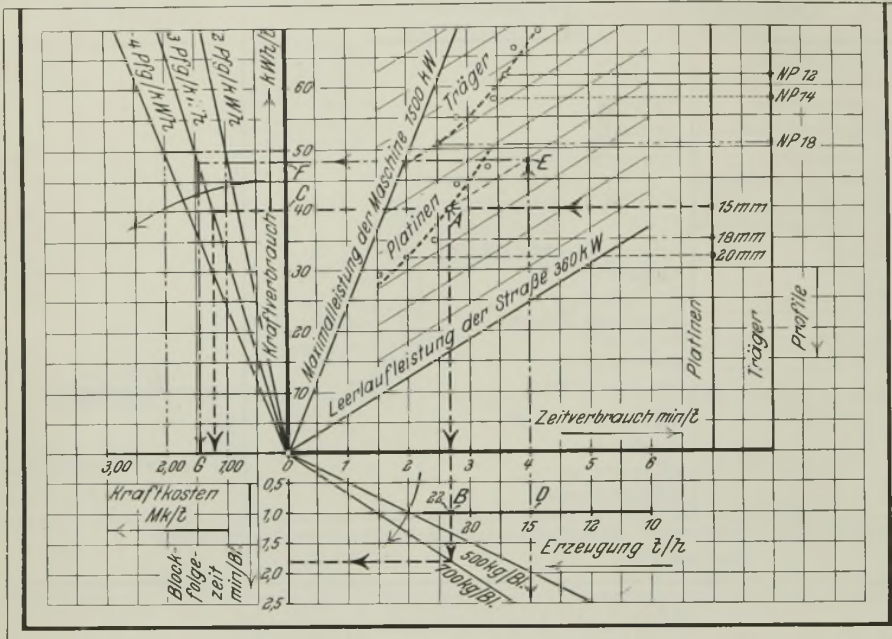 4 Pfg/kWh
3 Pfg/kWh
2 Pfg/kWh
kWh/t
60
50
40
30
20
10
F
C
Kraftverbrauch
Maximalleistung der Maschine 1500 kW
Träger
Platinen
A
E
Leerlaufleistung der Straße 360 kW
NP 12
NP 14
NP 18
15mm
18mm
20mm
Platinen
Träger
Profile
Zeitverbrauch min/t
3,00 2,00 G 1,00 0 1 2 3 4 5 6
Kraftkosten
Mk/t
Block-
folge-
zeit
min/Bl.
0,5
1,0
1,5
2,0
2,5
22 B D
20 15 12 10
Erzeugung t/h
500kg/Bl.
700kg/Bl.